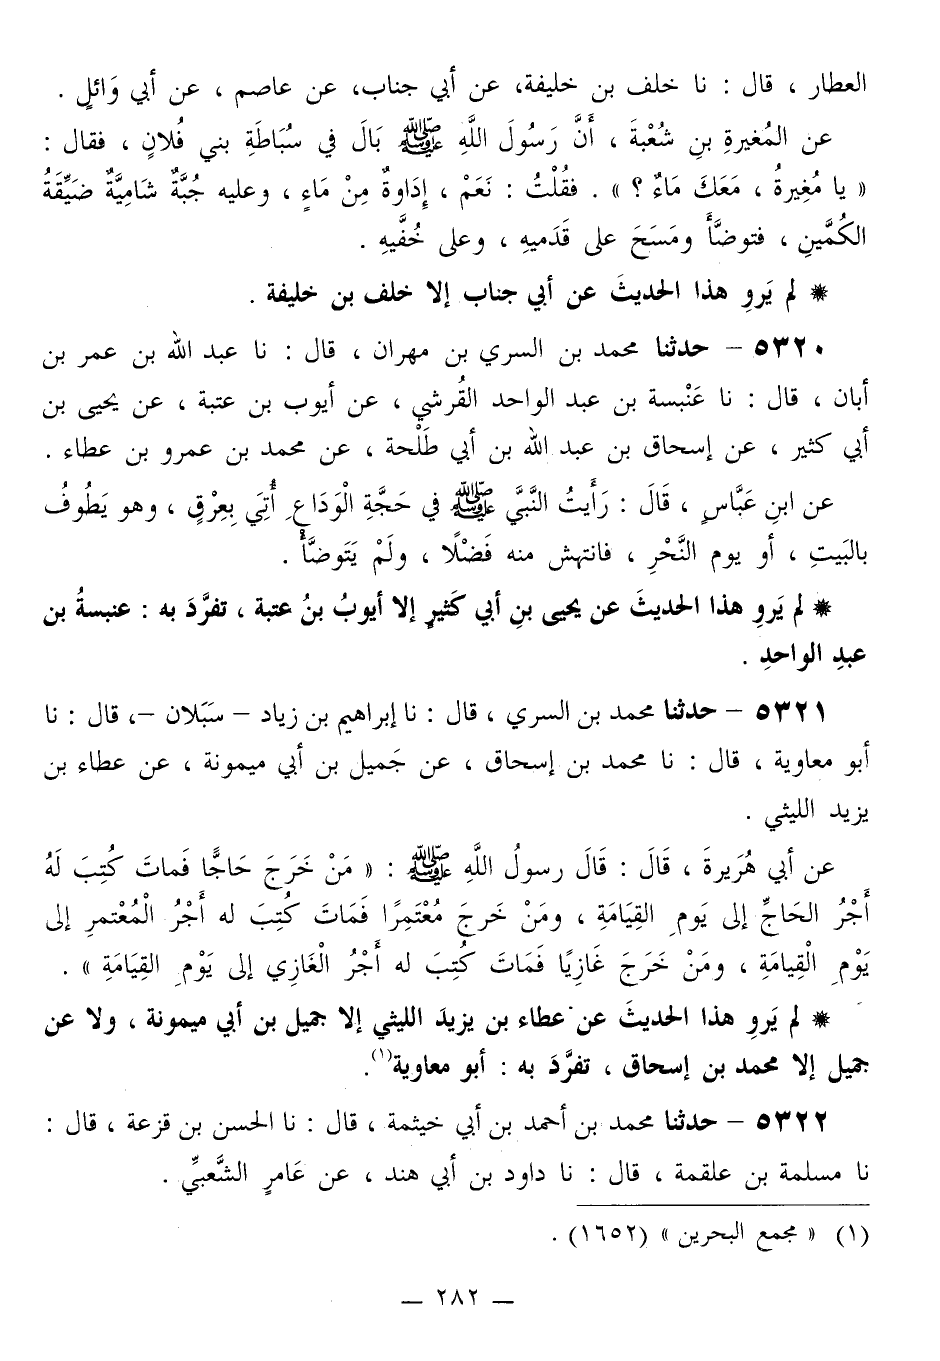 العطار ، قال : نا خلف بن خليفة، عن أبي جناب، عن عاصم ، عن أبي وَائلٍ .
عن المُغيرةِ بنِ شُعْبةَ ، أَنَّ رَسُولَ اللَّهِ ﷺ بَالَ في سُبَاطَةِ بني فُلانٍ ، فقال :
« يا مُغِيرةُ ، مَعَكَ مَاءٌ ؟ » . فقُلْتُ : نَعَمْ ، إِدَاوةٌ مِنْ مَاءٍ ، وعليه جُبَّةٌ شَامِيَّةٌ ضَيِّقَةُ
الكُمَّينِ ، فتوضَّأَ ومَسَحَ على قَدَميهِ ، وعلى خُفَّيهِ .
* لم يَروِ هذا الحديثَ عن أبي جناب إلا خلف بن خليفة .
٥٣٢٠ – حدثنا محمد بن السري بن مهران ، قال : نا عبد الله بن عمر بن
أبان ، قال : نا عَنْبسة بن عبد الواحد القُرشي ، عن أيوب بن عتبة ، عن يحيى بن
أبي كثير ، عن إسحاق بن عبد الله بن أبي طَلْحة ، عن محمد بن عمرو بن عطاء .
عن ابنِ عَبَّاسٍ ، قَالَ : رَأَيتُ النَّبيَّ ﷺ في حَجَّةِ الْوَدَاعِ أُتِيَ بِعِرْقٍ ، وهو يَطُوفُ
بالبَيتِ ، أو يوم النَّحْرِ ، فانتهش منه فَضْلًا ، ولَمْ يَتَوضَّأْ .
* لم يَروِ هذا الحديثَ عن يحيى بنِ أبي كَثيرٍ إلا أيوبُ بنُ عتبة ، تفرَّدَ به : عنبسةُ بن
عبدِ الواحدِ .
٥٣٢١ – حدثنا محمد بن السري ، قال : نا إبراهيم بن زياد – سَبَلان –، قال : نا
أبو معاوية ، قال : نا محمد بن إسحاق ، عن جَميل بن أبي ميمونة ، عن عطاء بن
يزيد الليثي .
عن أبي هُرَيرةَ ، قَالَ : قَالَ رسولُ اللَّهِ ﷺ : « مَنْ خَرَجَ حَاجًّا فَماتَ كُتِبَ لَهُ
أَجْرُ الحَاجِّ إلى يَومِ القِيَامَةِ ، ومَنْ خَرجَ مُعْتَمِرًا فَمَاتَ كُتِبَ له أَجْرُ الْمُعْتمرِ إلى
يَوْمِ الْقِيامَةِ ، ومَنْ خَرَجَ غَازِيًا فَمَاتَ كُتِبَ له أَجْرُ الْغَازِي إلى يَوْمِ القِيَامَةِ » .
* لم يَروِ هذا الحديثَ عن عطاء بن يزيدَ الليثي إلا جميل بن أبي ميمونة ، ولا عن
جميل إلا محمد بن إسحاق ، تفرَّدَ به : أبو معاوية(١).
٥٣٢٢ – حدثنا محمد بن أحمد بن أبي خيثمة ، قال : نا الحسن بن قزعة ، قال :
نا مسلمة بن علقمة ، قال : نا داود بن أبي هند ، عن عَامرٍ الشَّعبيِّ .
(١) « مجمع البحرين » (١٦٥٢) .
— ٢٨٢ —